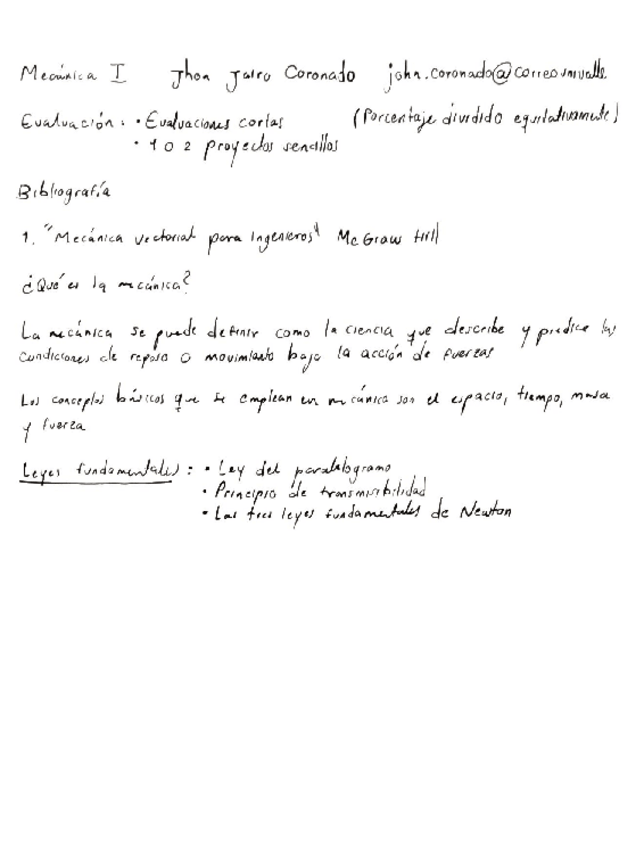 Mecánica I Jhon Jairo Coronado john.coronado@correounivalle
Evaluación: • Evaluaciones cortas (Porcentaje dividido equitativamente)
• 1 o 2 proyectos sencillos
Bibliografía
1. "Mecánica vectorial para Ingenieros" McGraw Hill
¿Qué es la mecánica?
La mecánica se puede definir como la ciencia que describe y predice las
condiciones de reposo o movimiento bajo la acción de fuerzas
Los conceptos básicos que se emplean en mecánica son el espacio, tiempo, masa
y fuerza
Leyes fundamentales: • Ley del paralelogramo
• Principio de transmisibilidad
• Las tres leyes fundamentales de Newton